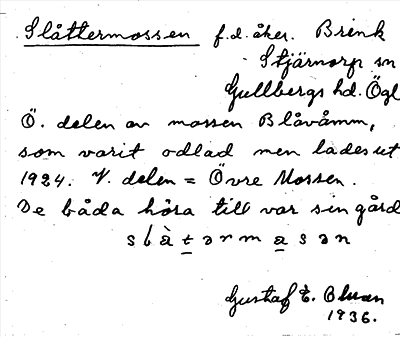 Slåttermossen f.d. åker. Brink
Stjärnorp sn
Gullbergs hd. Ögl
Ö. delen av mossen Blåvåmm,
som varit odlad men lades ut
1924. V. delen = Övre Mossen.
De båda höra till var sin gård
slàtərmasən
Gustaf E. Bluan
1936.